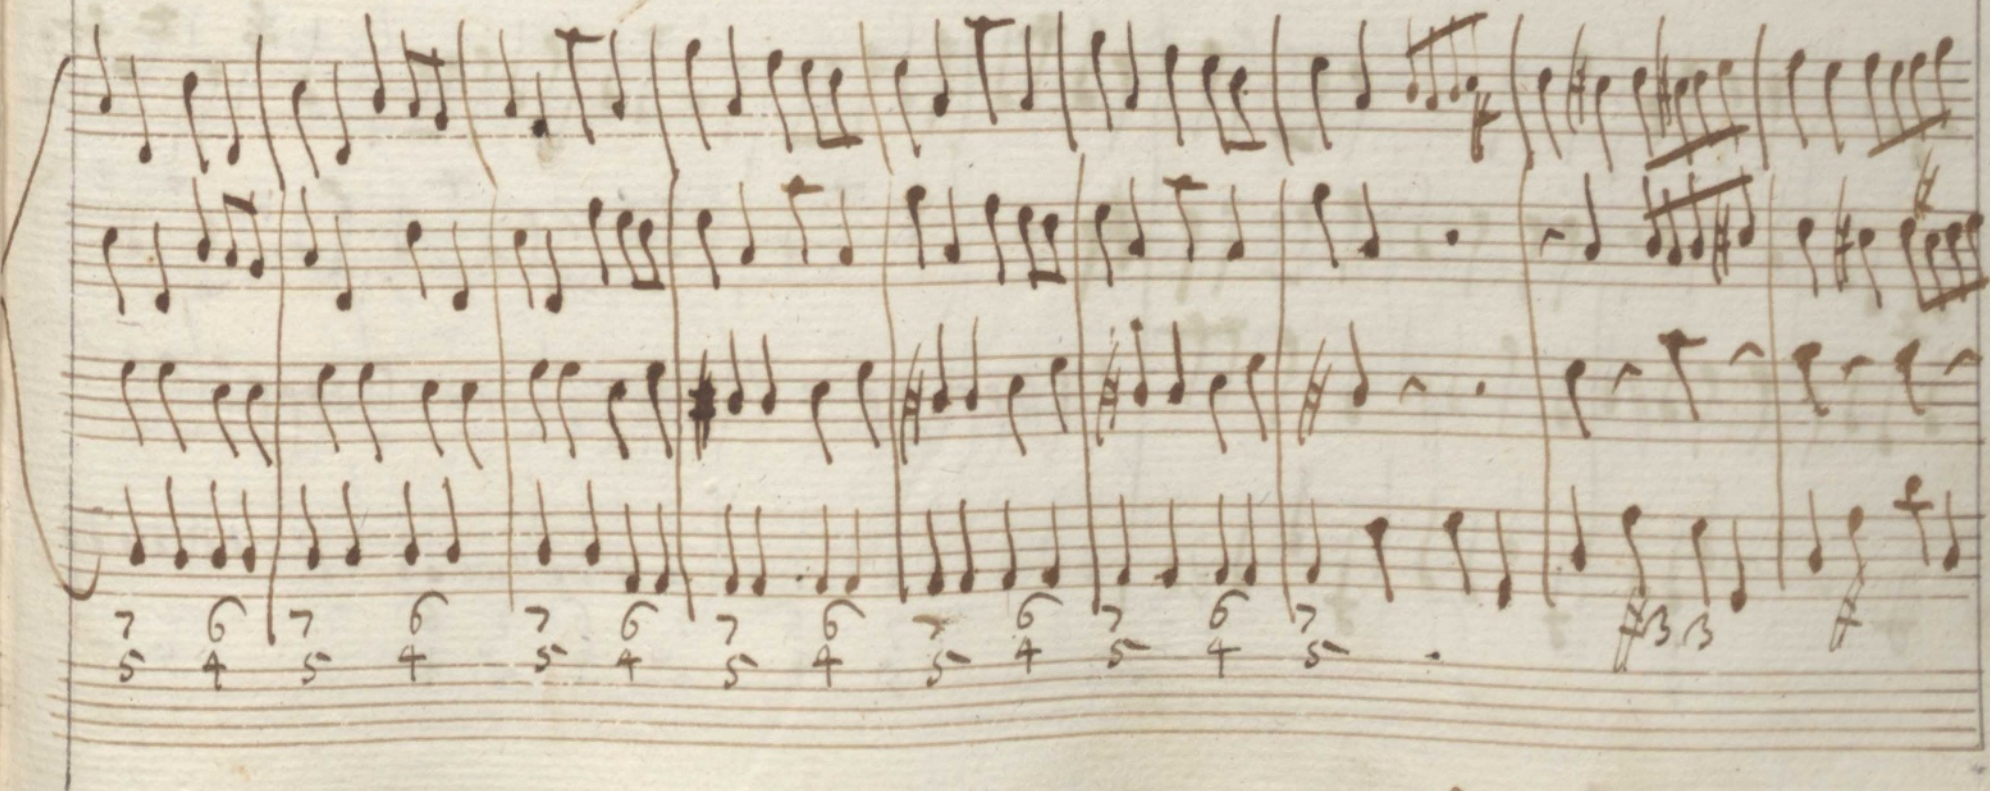 7 6 7 6 7 6 7 6 7 6 7 6 7 #3 3 #
5 4 5 4 5 4 5 4 5 4 5 4 5